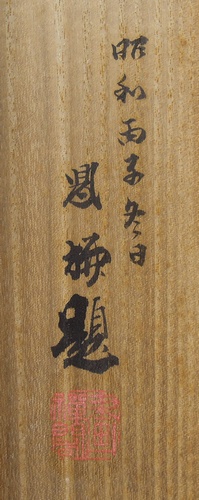 昭和丙子冬日
恩梅題